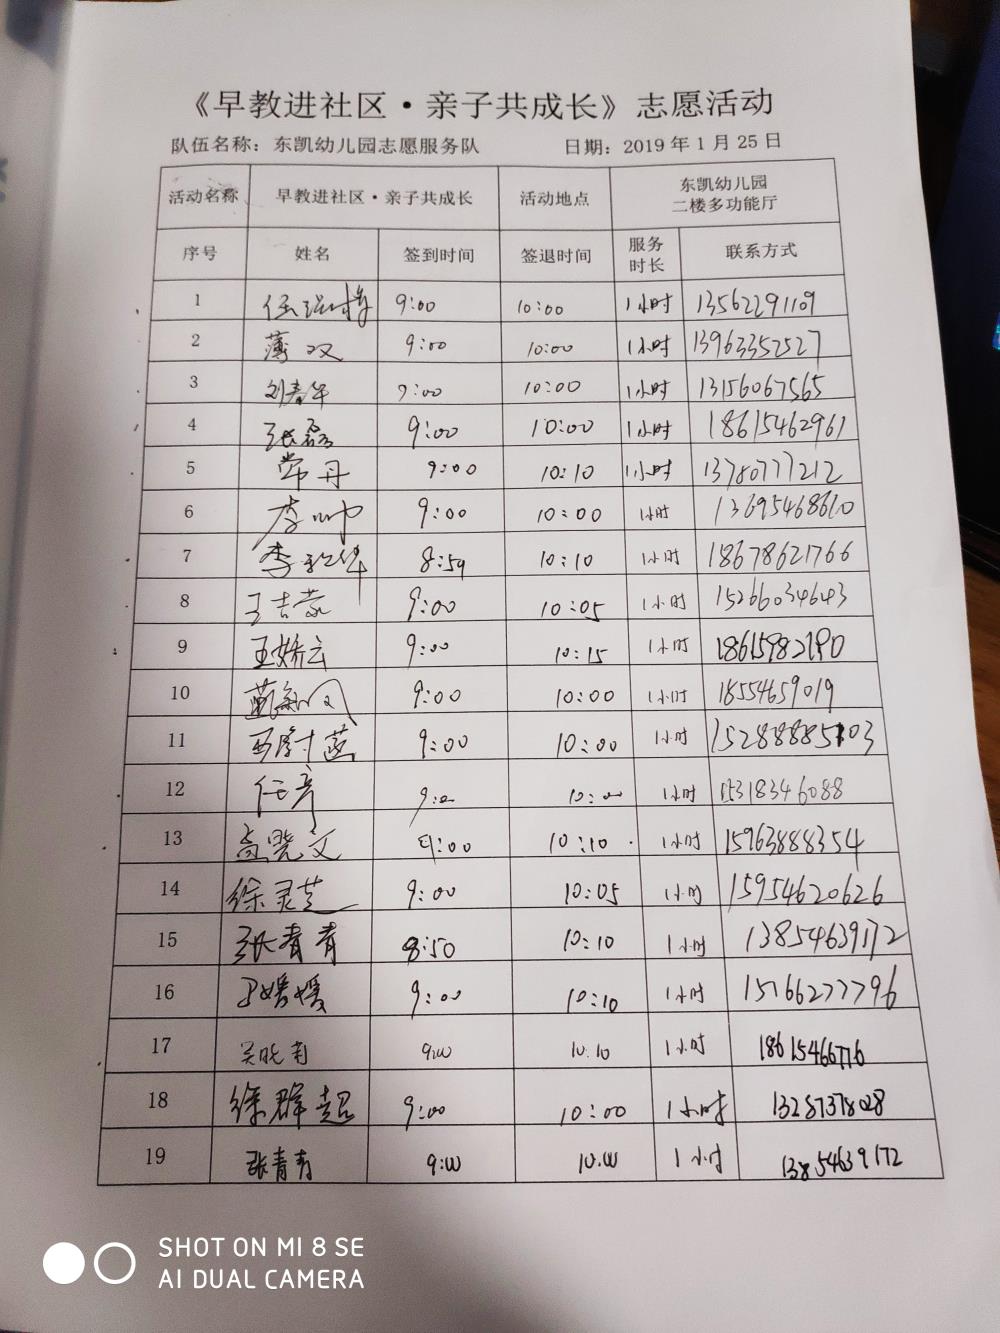 《早教进社区·亲子共成长》志愿活动
队伍名称：东凯幼儿园志愿服务队 日期：2019年1月25日
活动名称 早教进社区·亲子共成长 活动地点 东凯幼儿园
二楼多功能厅
序号 姓名 签到时间 签退时间 服务时长 联系方式
1 9:00 10:00 1小时 13562291109
2 薄双 9:00 10:00 1小时 13963352527
3 刘春华 9:00 10:00 1小时 13156067565
4 张磊 9:00 10:00 1小时 18615462961
5 常丹 9:00 10:10 1小时 13780777212
6 李帅 9:00 10:00 1小时 13695468610
7 8:59 10:10 1小时 18678621766
8 王吉蒙 9:00 10:05 1小时 15266034643
9 王娇云 9:00 10:15 1小时
10 9:00 10:00 1小时 18554659019
11 9:00 10:00 1小时 15288885103
12 任彦 9:00 10:00 1小时 15318346088
13 高晓文 9:00 10:10 1小时 15963888354
14 徐灵芝 9:00 10:05 1小时 15954620626
15 张青青 8:50 10:10 1小时 13854639172
16 王媛媛 9:00 10:10 1小时 15166277796
17 吴晓南 9:00 10.10 1小时
18 徐群超 9:00 10:00 1小时 13287378028
19 张青青 9:00 10.00 1小时 13854639172
SHOT ON MI 8 SE
AI DUAL CAMERA